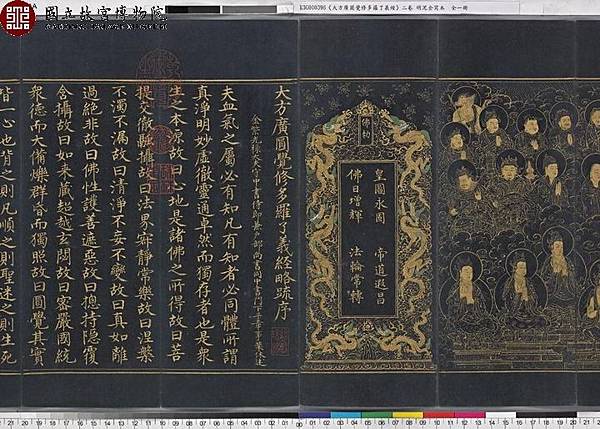 國立故宮博物院
《大方廣圓覺修多羅了義經》二卷 明泥金寫本 全一冊
皇圖永固 帝道遐昌
佛日增輝 法輪常轉
大方廣圓覺修多羅了義經略疏序
金紫光祿大夫守中書侍郎兼戶部尚書同中書門下平章事裴休述
夫血氣之屬必有知凡有知者必同體所謂
真淨明妙虛徹靈通卓然而獨存者也是衆
生之本源故曰心地是諸佛之所得故曰菩
提交徹融攝故曰法界寂靜常樂故曰涅槃
不濁不漏故曰清淨不妄不變故曰真如離
過絕非故曰佛性護善遮惡故曰揔持隱覆
含攝故曰如來藏超越玄閟故曰密嚴國統
衆德而大備爍群昏而獨照故曰圓覺其實
皆一心也背之則凡順之則聖迷之則生死